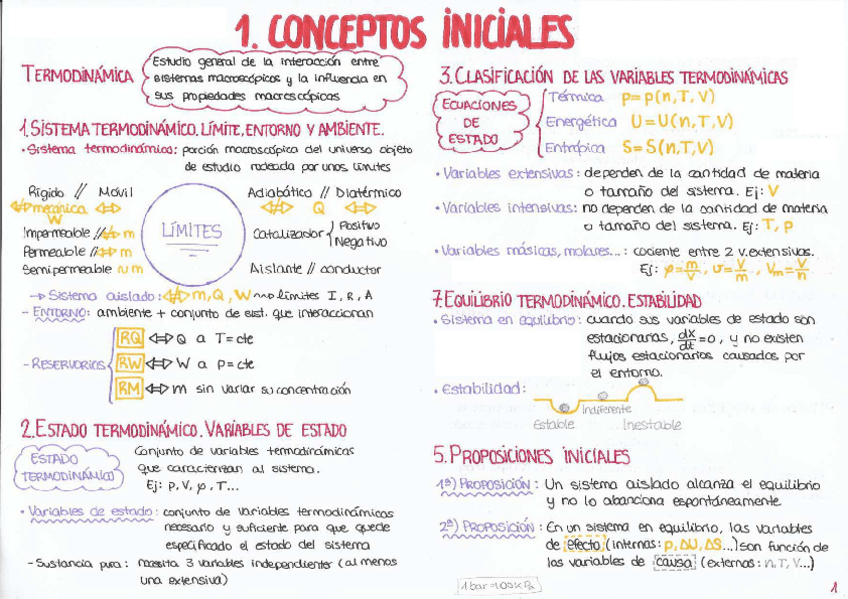 1. CONCEPTOS INICIALES
TERMODINÁMICA
Estudio general de la interacción entre
sistemas macroscópicos y la influencia en
sus propiedades macroscópicas
1. SISTEMA TERMODINÁMICO. LÍMITE, ENTORNO Y AMBIENTE.
• Sistema termodinámico: porción macroscópica del universo objeto
de estudio rodeada por unos límites
Rígido // Móvil
mecánica
W
Impermeable // m
Permeable // m
Semipermeable ~ m
LÍMITES
Adiabático // Diatérmico
Q
Catalizador { Positivo
Negativo
Aislante // conductor
→ Sistema aislado: m, Q, W límites I, R, A
- ENTORNO: ambiente + conjunto de sist. que interaccionan
- RESERVORIOS
RQ ⇔ Q a T=cte
RW ⇔ W a p=cte
RM ⇔ m sin variar su concentración
2. ESTADO TERMODINÁMICO. VARIABLES DE ESTADO
ESTADO
TERMODINÁMICO
Conjunto de variables termodinámicas
que caracterizan al sistema.
Ej: p, V, φ, T...
• Variables de estado: conjunto de variables termodinámicas
necesario y suficiente para que quede
especificado el estado del sistema
- Sustancia pura: necesita 3 variables independienter (al menos
una extensiva)
3. CLASIFICACIÓN DE LAS VARIABLES TERMODINÁMICAS
ECUACIONES
DE
ESTADO
Térmica p=p(n,T,V)
Energética U=U(n,T,V)
Entrópica S=S(n,T,V)
• Variables extensivas: dependen de la cantidad de materia
o tamaño del sistema. Ej: V
• Variables intensivas: no dependen de la cantidad de materia
o tamaño del sistema. Ej: T, p
• Variables másicas, molares...: cociente entre 2 v.extensivas.
Ej: φ=m/V, v=V/m, Vm=V/n
7. EQUILIBRIO TERMODINÁMICO. ESTABILIDAD
• Sistema en equilibrio: cuando sus variables de estado son
estacionarias, dx/dt=0, y no existen
flujos estacionarios causados por
el entorno.
• Estabilidad:
Indiferente
Estable Inestable
5. PROPOSICIONES INICIALES
1ª) PROPOSICIÓN: Un sistema aislado alcanza el equilibrio
y no lo abandona espontáneamente
2ª) PROPOSICIÓN: En un sistema en equilibrio, las variables
de efecto (internas: p, ΔU, ΔS...) son función de
las variables de causa (externas: n, T, V...)
1 bar = 100 KPa
1